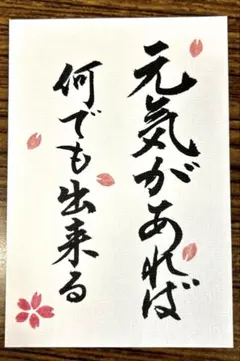 元気があれば
何でも出来る